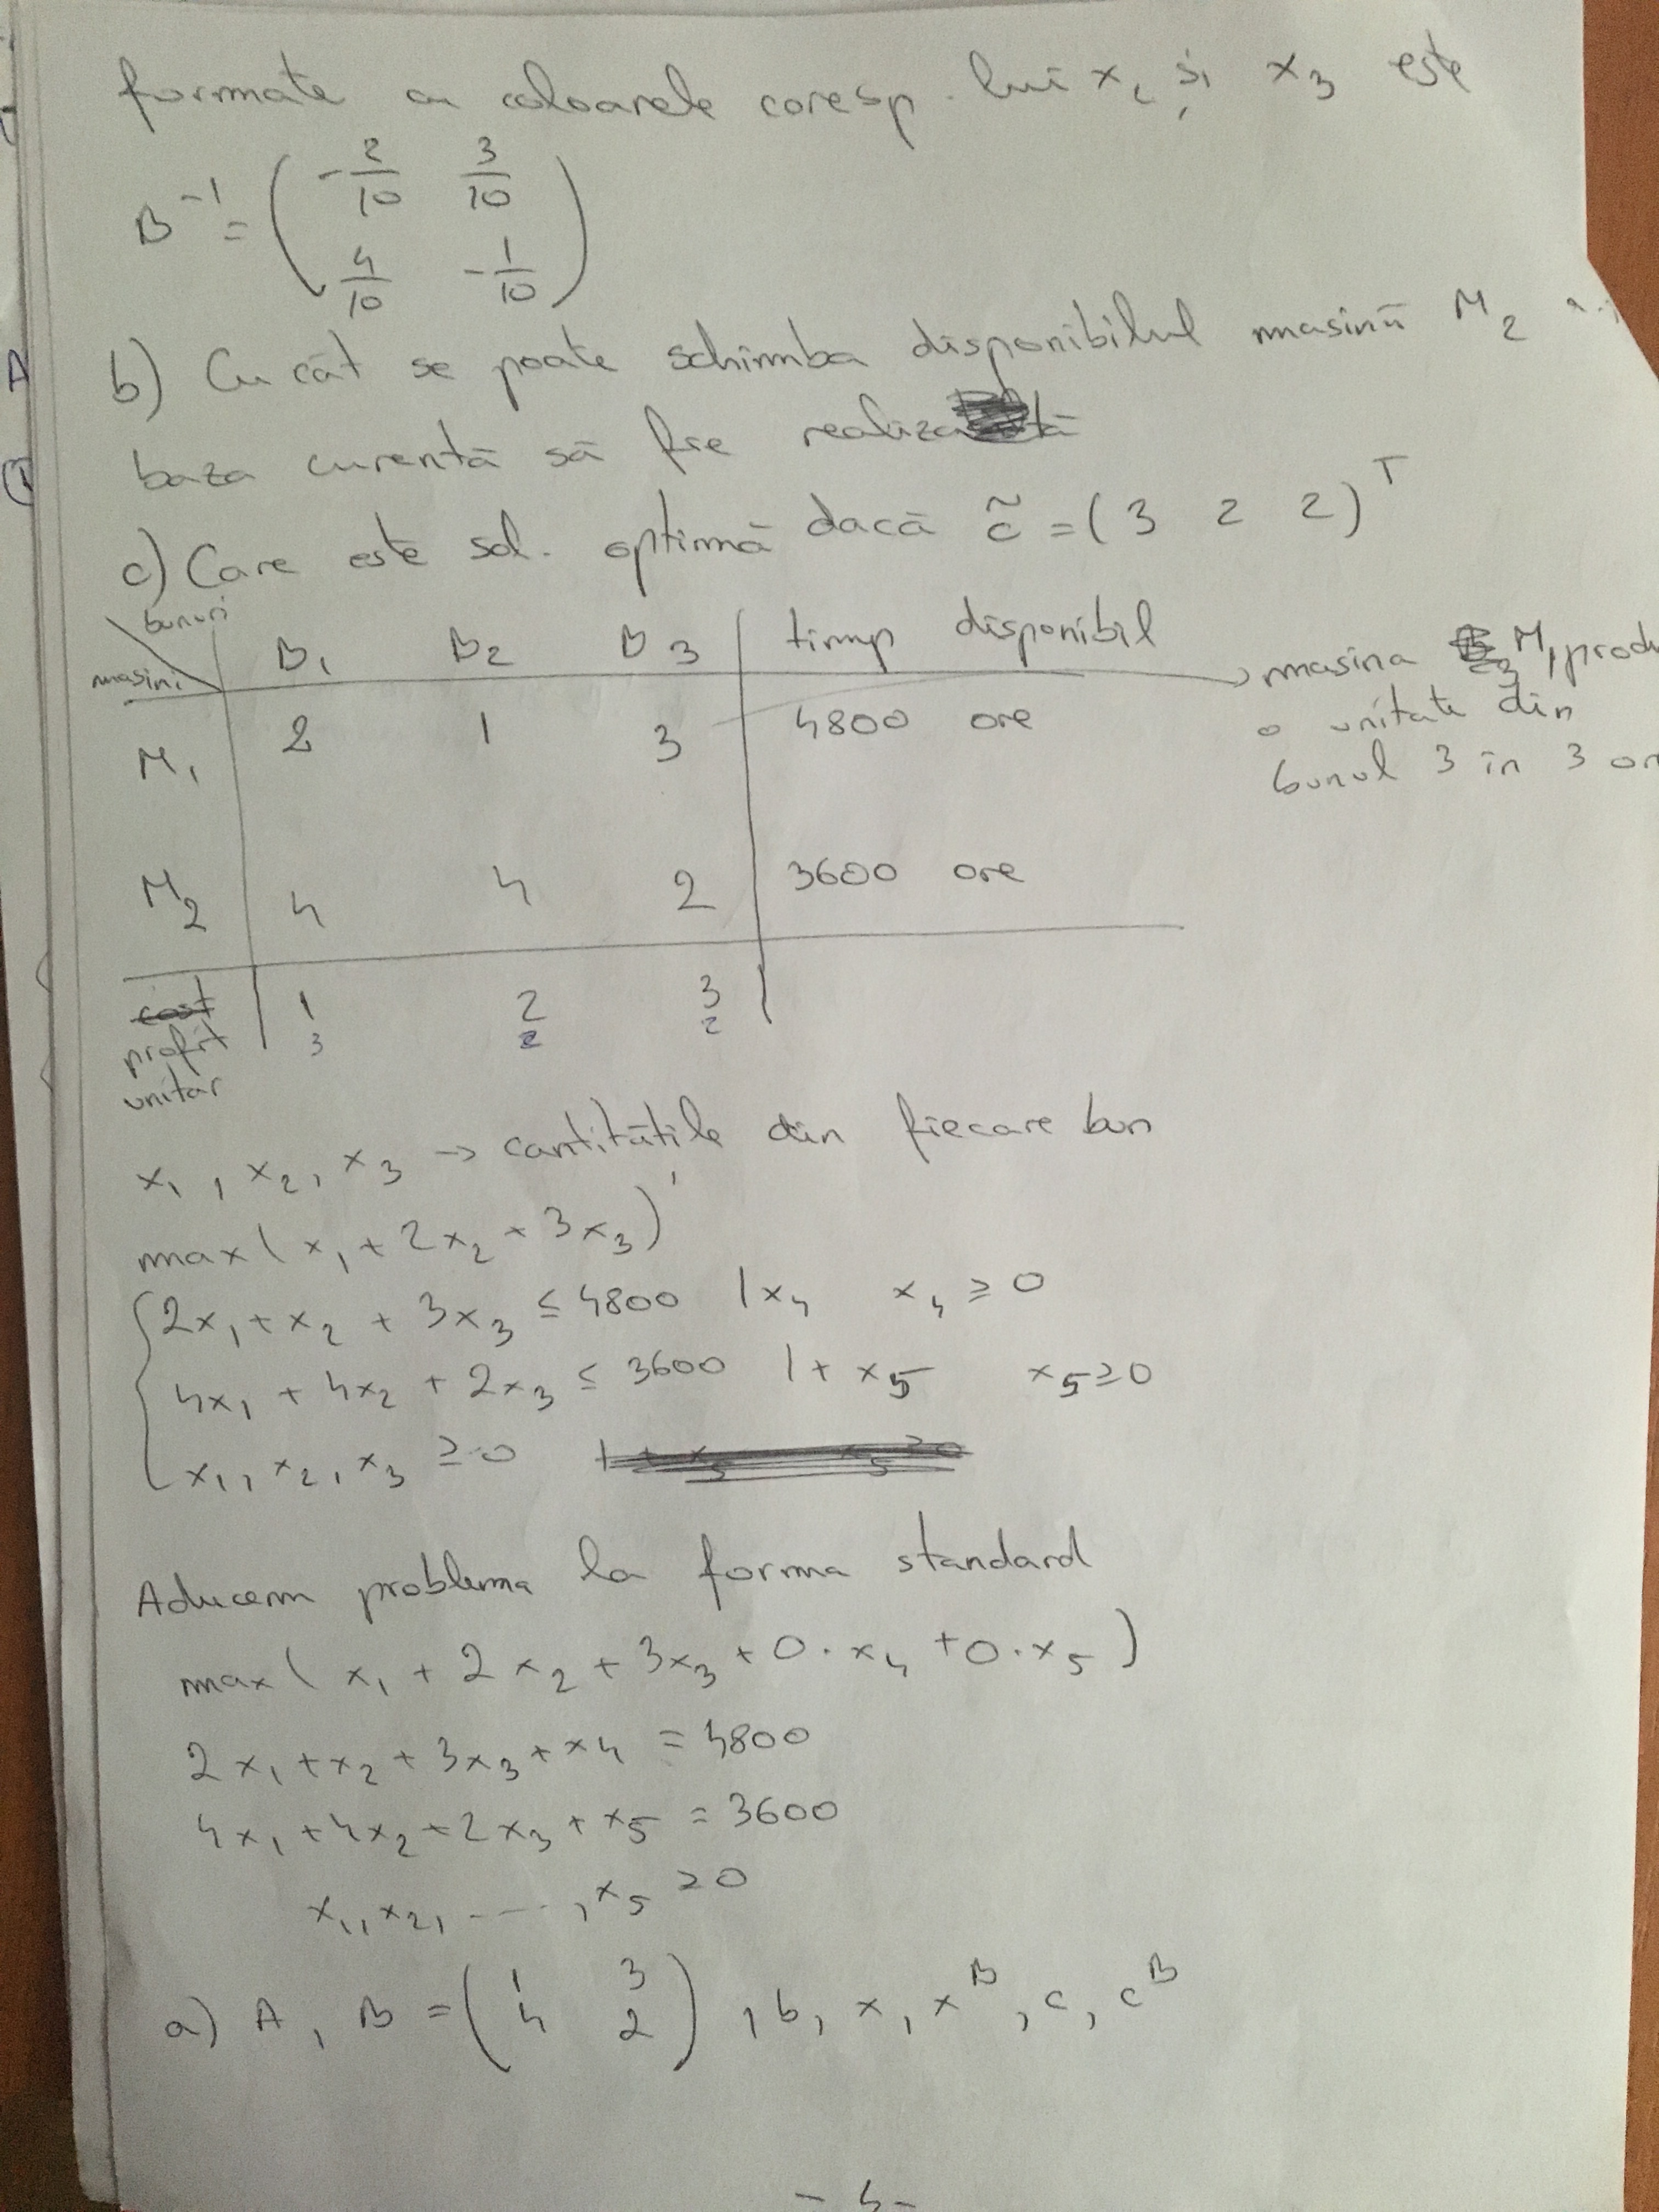 formate cu coloanele coresp. lui x₂ și x₃ este
B⁻¹ = ( -2/10 3/10
4/10 -1/10 )
b) Cu cât se poate schimba disponibilul masinii M₂ a.î
baza curentă să fie realizabilă
c) Care este sol. optimă dacă c̃ = (3 2 2)ᵀ
bunuri
masini B₁ B₂ B₃ timp disponibil
M₁ 2 1 3 4800 ore
→ masina M₁ prod
o unitate din
bunul 3 în 3 or
M₂ 4 4 2 3600 ore
cost 1 2 3
profit 3 2 2
unitar
x₁, x₂, x₃ → cantitățile din fiecare bun
max(x₁ + 2x₂ + 3x₃)
2x₁ + x₂ + 3x₃ ≤ 4800 | x₄ x₄ ≥ 0
4x₁ + 4x₂ + 2x₃ ≤ 3600 | + x₅ x₅ ≥ 0
x₁, x₂, x₃ ≥ 0 | + x₅ x₅ ≥ 0
Aducem problema la forma standard
max( x₁ + 2x₂ + 3x₃ + 0·x₄ + 0·x₅ )
2x₁ + x₂ + 3x₃ + x₄ = 4800
4x₁ + 4x₂ + 2x₃ + x₅ = 3600
x₁, x₂, ----, x₅ ≥ 0
a) A, B = ( 1 3
4 2 ), b, x, xᴮ, c, cᴮ
- 4 -